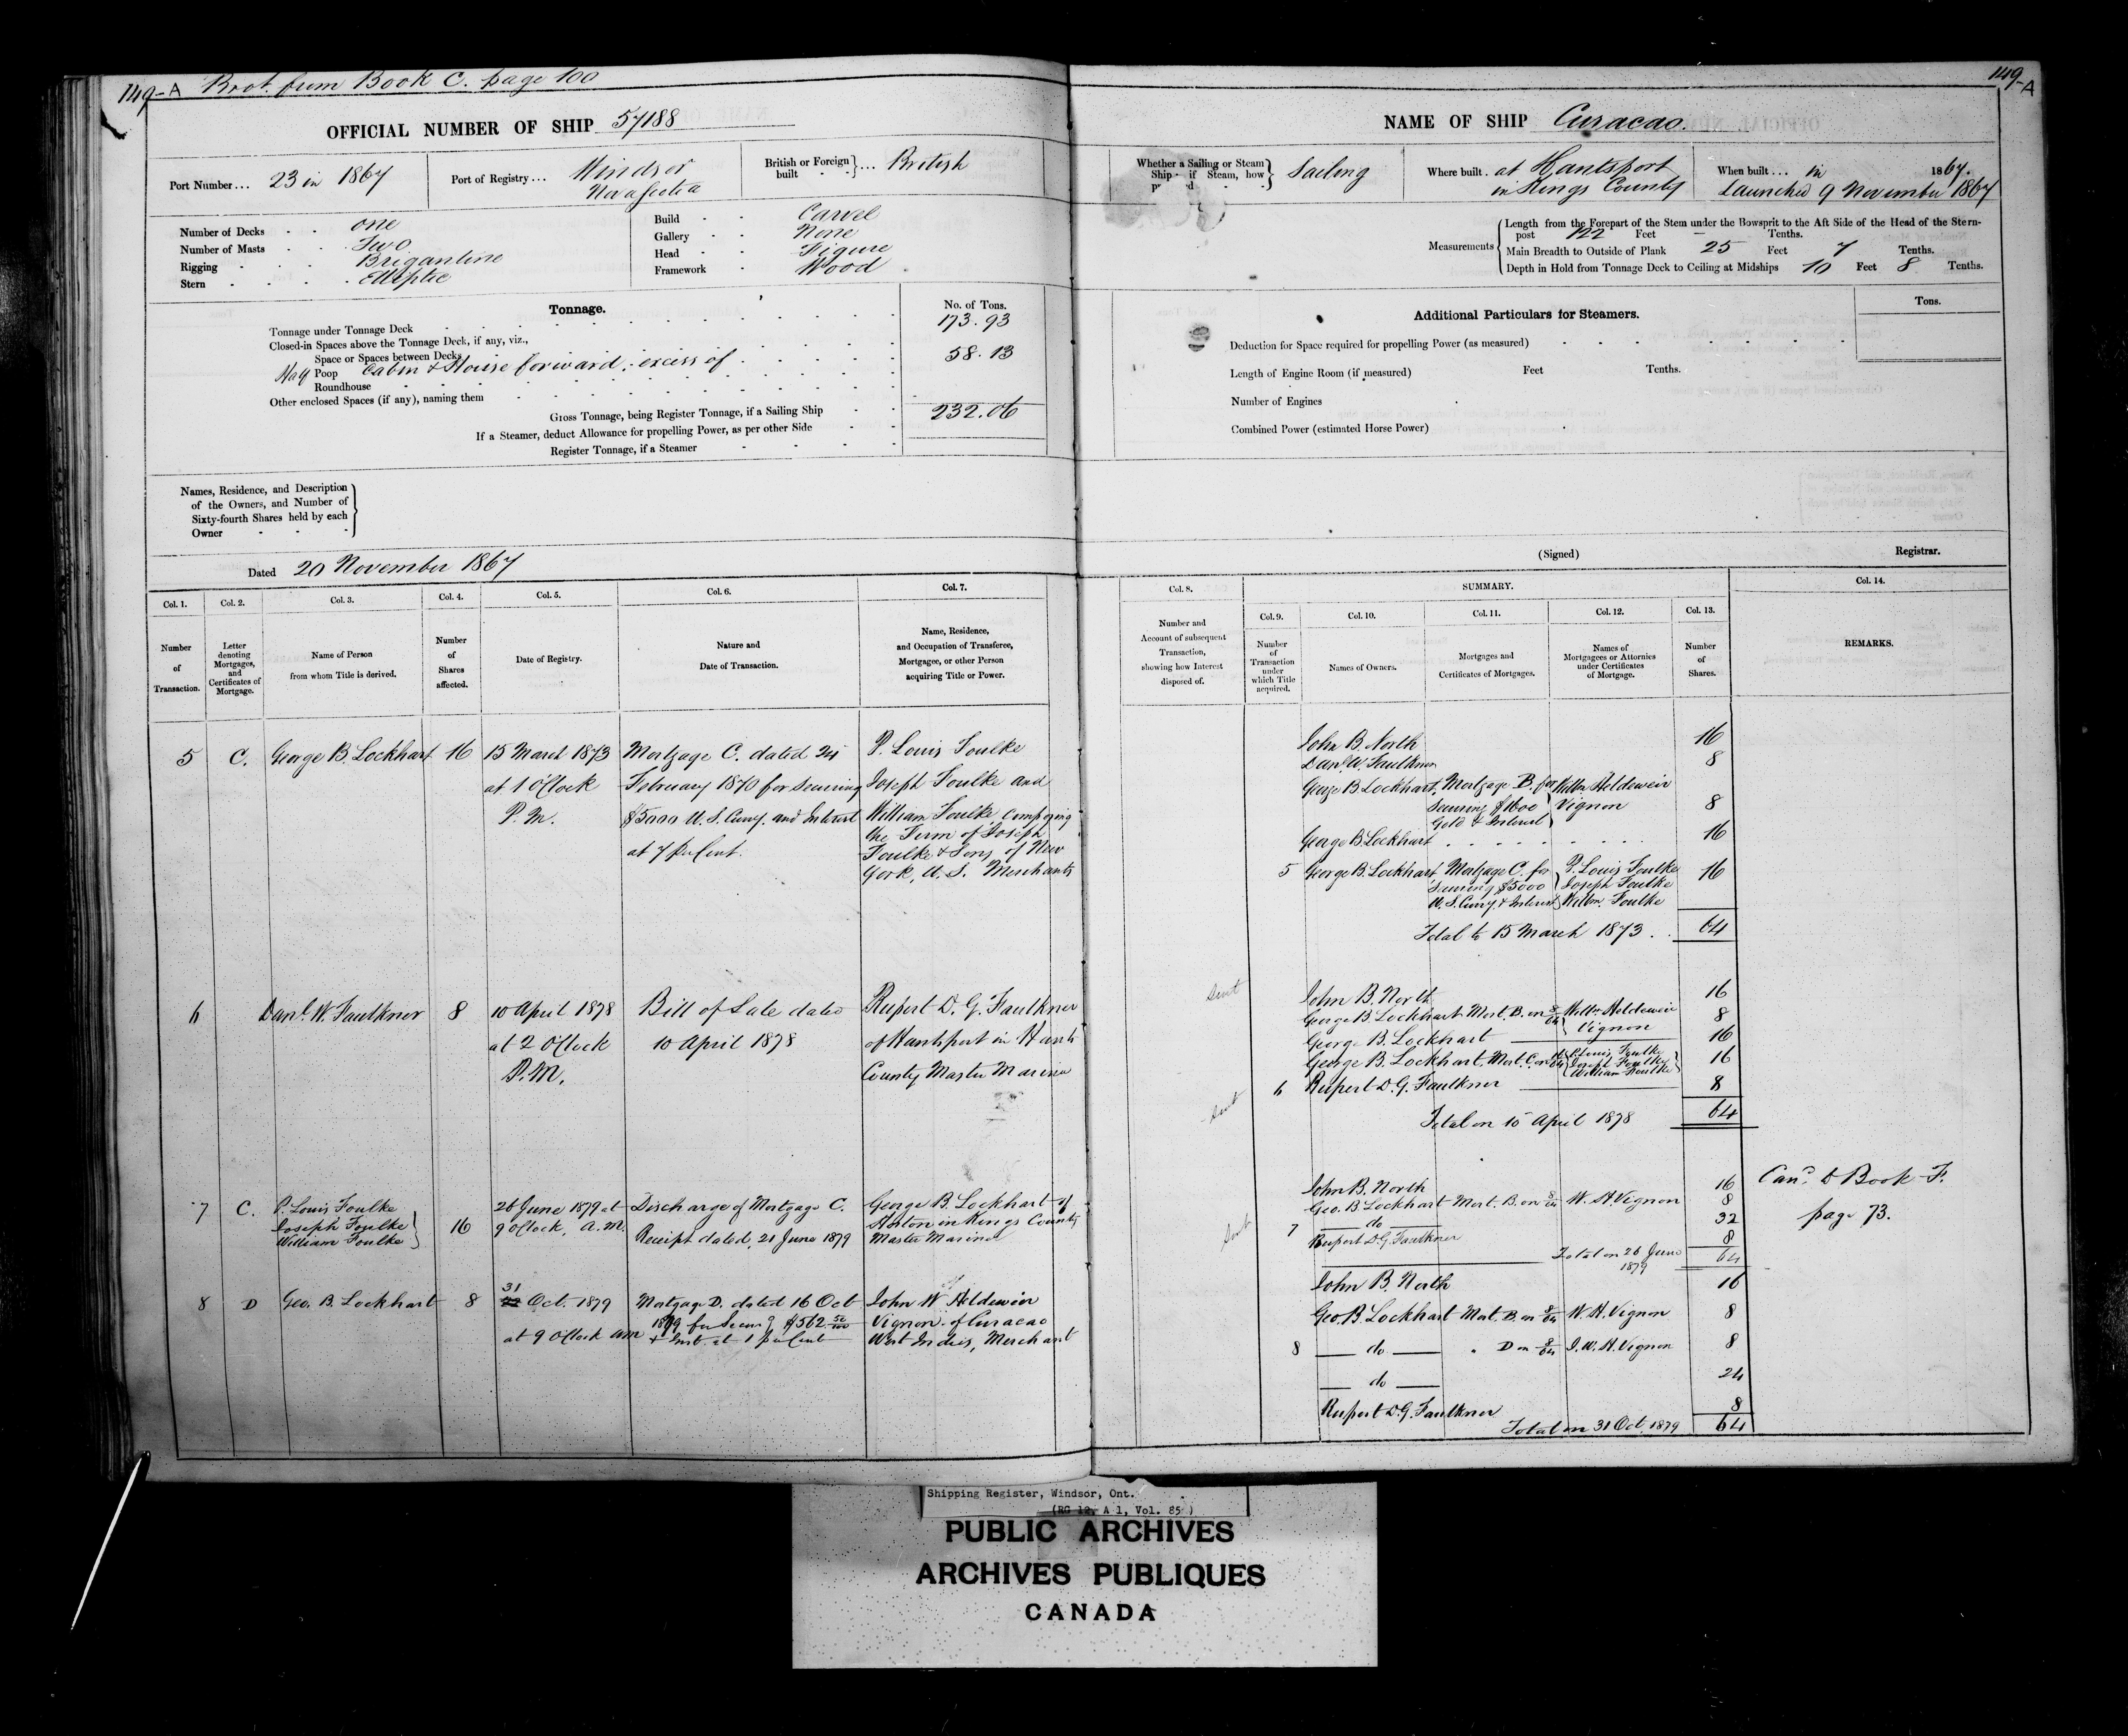 149-A Brot. from Book C. page 100
149-A
OFFICIAL NUMBER OF SHIP 57188
Port Number... 23 in 1867
Port of Registry... Windsor
Nova Scotia
British or Foreign built } ... British
Number of Decks one
Number of Masts Two
Rigging Brigantine
Stern Elliptic
Build Carvel
Gallery None
Head Figure
Framework Wood
Tonnage.
No. of Tons.
Tonnage under Tonnage Deck 173.93
Closed-in Spaces above the Tonnage Deck, if any, viz.,
Space or Spaces between Decks
Half Poop Cabin & House forward, excess of 58.13
Roundhouse
Other enclosed Spaces (if any), naming them
Gross Tonnage, being Register Tonnage, if a Sailing Ship 232.06
If a Steamer, deduct Allowance for propelling Power, as per other Side
Register Tonnage, if a Steamer
Names, Residence, and Description
of the Owners, and Number of
Sixty-fourth Shares held by each
Owner
Dated 20 November 1867
NAME OF SHIP Curacao.
Whether a Sailing or Steam
Ship; if Steam, how } Sailing
Where built. at Hantsport
in Kings County
When built... in 1867.
Launched 9 November 1867
Measurements
Length from the Forepart of the Stem under the Bowsprit to the Aft Side of the Head of the Stern-
post 122 Feet — Tenths.
Main Breadth to Outside of Plank 25 Feet 7 Tenths.
Depth in Hold from Tonnage Deck to Ceiling at Midships 10 Feet 8 Tenths.
Additional Particulars for Steamers.
Tons.
Deduction for Space required for propelling Power (as measured)
Length of Engine Room (if measured) Feet Tenths.
Number of Engines
Combined Power (estimated Horse Power)
(Signed) Registrar.
Col. 1. Col. 2. Col. 3. Col. 4. Col. 5. Col. 6. Col. 7.
Number of Transaction.
Letter denoting Mortgages, and Certificates of Mortgage.
Name of Person from whom Title is derived.
Number of Shares affected.
Date of Registry.
Nature and Date of Transaction.
Name, Residence, and Occupation of Transferee, Mortgagee, or other Person acquiring Title or Power.
Col. 8. SUMMARY. Col. 14.
Col. 9. Col. 10. Col. 11. Col. 12. Col. 13.
Number and Account of subsequent Transaction, showing how Interest disposed of.
Number of Transaction under which Title acquired.
Names of Owners.
Mortgages and Certificates of Mortgages.
Names of Mortgagees or Attornies under Certificates of Mortgage.
Number of Shares.
REMARKS.
5 C. George B. Lockhart 16 15 March 1873 Mortgage C. dated 24 P. Louis Foulke
at 1 OClock February 1870 for securing Joseph Foulke and
P.M. $5000 U.S. Curry. and Interest William Foulke, Composing
the Firm of Joseph
at 7 per Cent. Foulke & Sons of New
York, U.S. Merchants
John B. North 16
Danl. W. Faulkner 8
George B Lockhart, Mortgage B. for Willm Heldewier
Securing $1600 Vignon 8
Gold & Interest
George B. Lockhart 16
5 George B. Lockhart, Mortgage C. for P. Louis Foulke 16
Securing $5000 Joseph Foulke
U.S. Curry. & Interest Willm. Foulke
Total to 15 March 1873 . . 64
6 Danl. W. Faulkner 8 10 April 1878 Bill of Sale dated Rupert D. G. Faulkner
at 2 OClock 10 April 1878 of Hantsport in Hants
P.M. County Master Mariner
Sent
John B. North 16
George B. Lockhart Mort. B. on 8/64 Willm Heldewier 8
Vignon
George B. Lockhart 16
George B. Lockhart, Mort. C. on 16/64 P. Louis Foulke 16
Joseph Foulke
William Foulke
Sent 6 Rupert D. G. Faulkner 8
Total on 10 April 1878 64
7 C. P. Louis Foulke 26 June 1879 at Discharge of Mortgage C. George B. Lockhart of
Joseph Foulke 16 9 oClock, A.M. Receipt dated, 21 June 1879 Horton in Kings County
William Foulke Master Mariner
John B. North 16
Geo. B. Lockhart Mort. B. on 8/64 W. H. Vignon 8
Sent 7 do 32
Rupert D.G. Faulkner 8
Total on 26 June 64
1879
Card. to Book F.
page 73.
8 D Geo. B. Lockhart 8 31 Oct. 1879 Mortgage D. dated 16 Oct John W Heldewier
1879 for Securg $562 50/100 Vignon of Curacao
at 9 OClock am & Int. at 1 per Cent West Indies, Merchant
John B. North 16
Geo. B. Lockhart Mort. B. on 8/64 W. H. Vignon 8
8 do " D on 8/64 J. W. H. Vignon 8
do 24
Rupert D.G. Faulkner 8
Total on 31 Oct. 1879 64
Shipping Register, Windsor, Ont.
(RG 12, A 1, Vol. 85)
PUBLIC ARCHIVES
ARCHIVES PUBLIQUES
CANADA